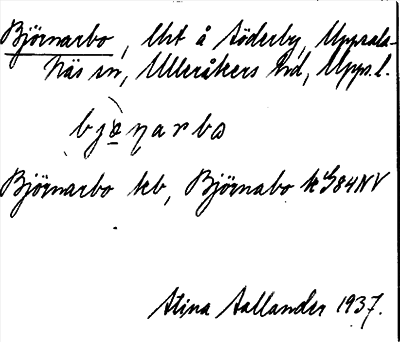 Björnarbo, lht å Söderby, Uppsala-
Näs sn, Ulleråkers hd, Upps. l.
bjo̱ṇarbo
Björnarbo kb, Björnabo k G84NV
Stina Sallander 1937.